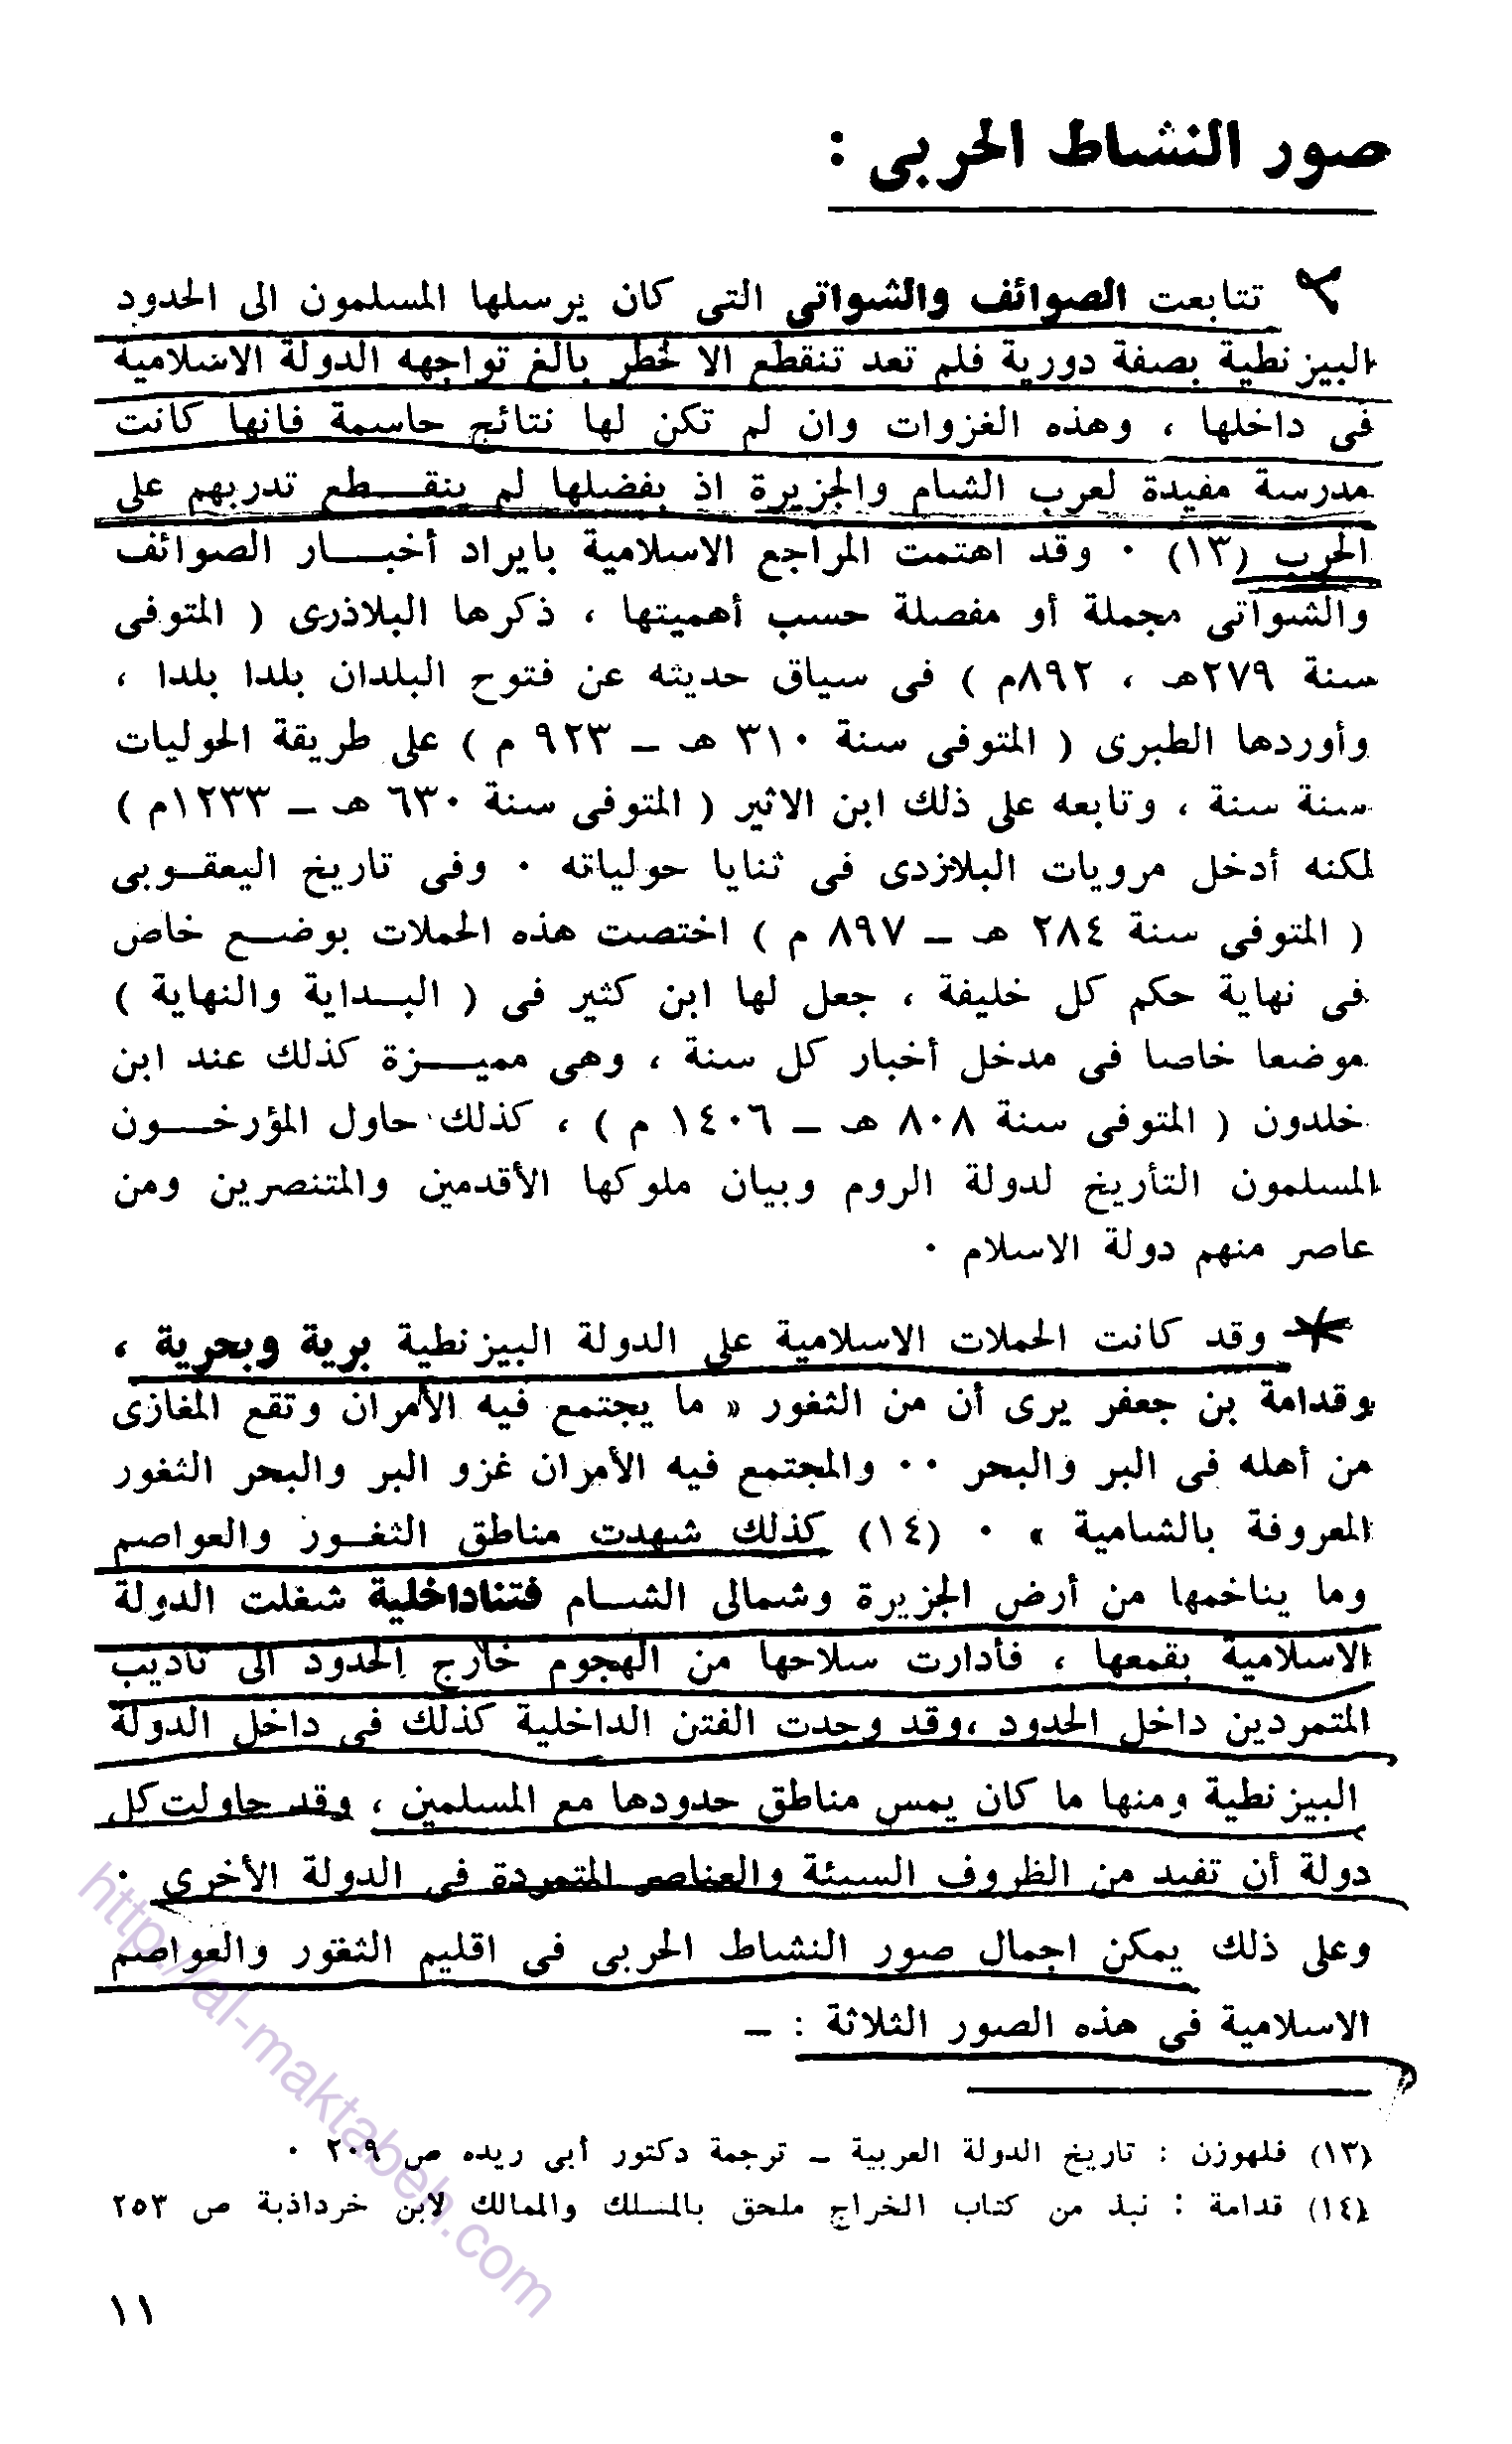 صور النشاط الحربى :
تتابعت الصوائف والشواتى التى كان يرسلها المسلمون الى الحدود
البيزنطية بصفة دورية فلم تعد تنقطع الا لخطر بالغ تواجهه الدولة الاسلامية
فى داخلها ، وهذه الغزوات وان لم تكن لها نتائج حاسمة فانها كانت
مدرسة مفيدة لعرب الشام والجزيرة اذ بفضلها لم ينقـــطع تدربهم على
الحرب (١٣) ٠ وقد اهتمت المراجع الاسلامية بايراد أخبـــار الصوائف
والشواتى مجملة أو مفصلة حسب أهميتها ، ذكرها البلاذرى ( المتوفى
سنة ٢٧٩هـ ، ٨٩٢م ) فى سياق حديثه عن فتوح البلدان بلدا بلدا ،
وأوردها الطبرى ( المتوفى سنة ٣١٠ هـ ــ ٩٢٣ م ) على طريقة الحوليات
سنة سنة ، وتابعه على ذلك ابن الاثير ( المتوفى سنة ٦٣٠ هـ ــ ١٢٣٣م )
لكنه أدخل مرويات البلاذرى فى ثنايا حولياته ٠ وفى تاريخ اليعقــوبى
( المتوفى سنة ٢٨٤ هـ ــ ٨٩٧ م ) اختصت هذه الحملات بوضــع خاص
فى نهاية حكم كل خليفة ، جعل لها ابن كثير فى ( البــداية والنهاية )
موضعا خاصا فى مدخل أخبار كل سنة ، وهى مميـــزة كذلك عند ابن
خلدون ( المتوفى سنة ٨٠٨ هـ ــ ١٤٠٦ م ) ، كذلك حاول المؤرخـــون
المسلمون التأريخ لدولة الروم وبيان ملوكها الأقدمين والمتنصرين ومن
عاصر منهم دولة الاسلام ٠
وقد كانت الحملات الاسلامية على الدولة البيزنطية برية وبحرية ،
وقدامة بن جعفر يرى أن من الثغور « ما يجتمع فيه الأمران وتقع المغازى
من أهله فى البر والبحر ٠٠ والمجتمع فيه الأمران غزو البر والبحر الثغور
المعروفة بالشامية » ٠ (١٤) كذلك شهدت مناطق الثغــور والعواصم
وما يتاخمها من أرض الجزيرة وشمالى الشـــام فتناداخلية شغلت الدولة
الاسلامية بقمعها ، فأدارت سلاحها من الهجوم خارج الحدود الى تأديب
المتمردين داخل الحدود ،وقد وجدت الفتن الداخلية كذلك فى داخل الدولة
البيزنطية ومنها ما كان يمس مناطق حدودها مع المسلمين ، وقد حاولت كل
دولة أن تفيد من الظروف السيئة والعناصر المتمردة فى الدولة الأخرى ٠
وعلى ذلك يمكن اجمال صور النشاط الحربى فى اقليم الثغور والعواصم
الاسلامية فى هذه الصور الثلاثة : ــ
(١٣) فلهوزن : تاريخ الدولة العربية ــ ترجمة دكتور أبى ريده ص ٢٠٩ ٠
(١٤) قدامة : نبذ من كتاب الخراج ملحق بالمسلك والممالك لابن خرداذبة ص ٢٥٣
١١
http://al-maktabeh.com